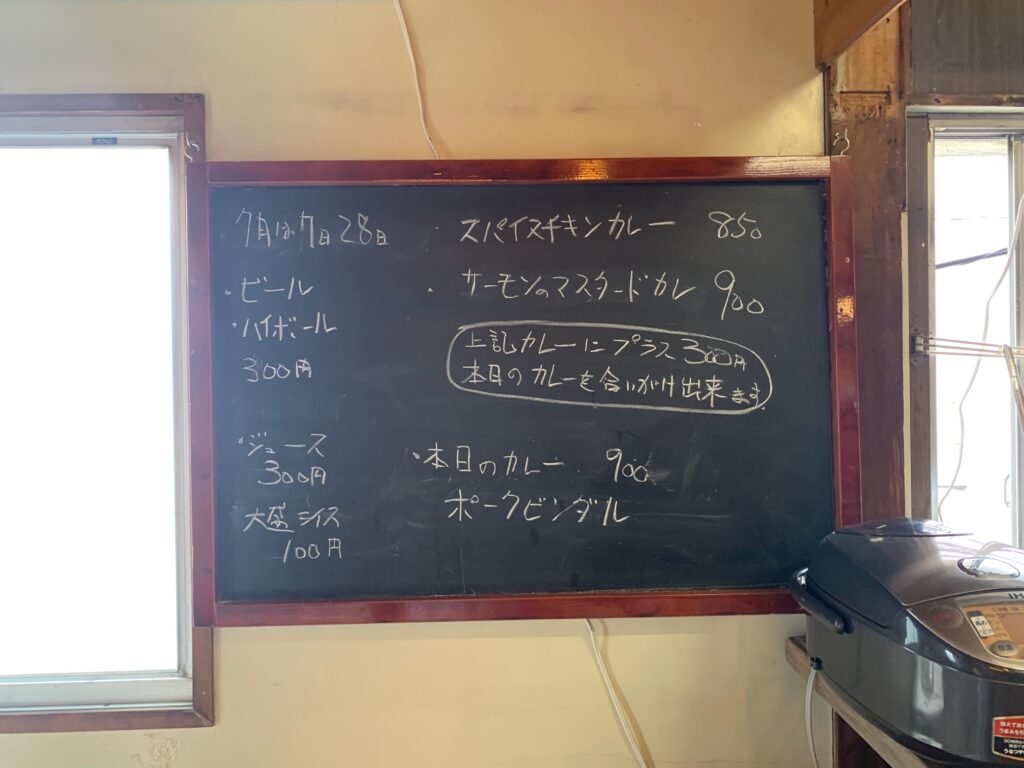 7月は7日28日
・ビール
・ハイボール
300円
・ジュース
300円
大盛ライス
100円
・スパイスチキンカレー 850
・サーモンのマスタードカレ 900
上記カレーにプラス300円
本日のカレーを合いがけ出来ます
・本日のカレー 900
ポークビンダル
IH